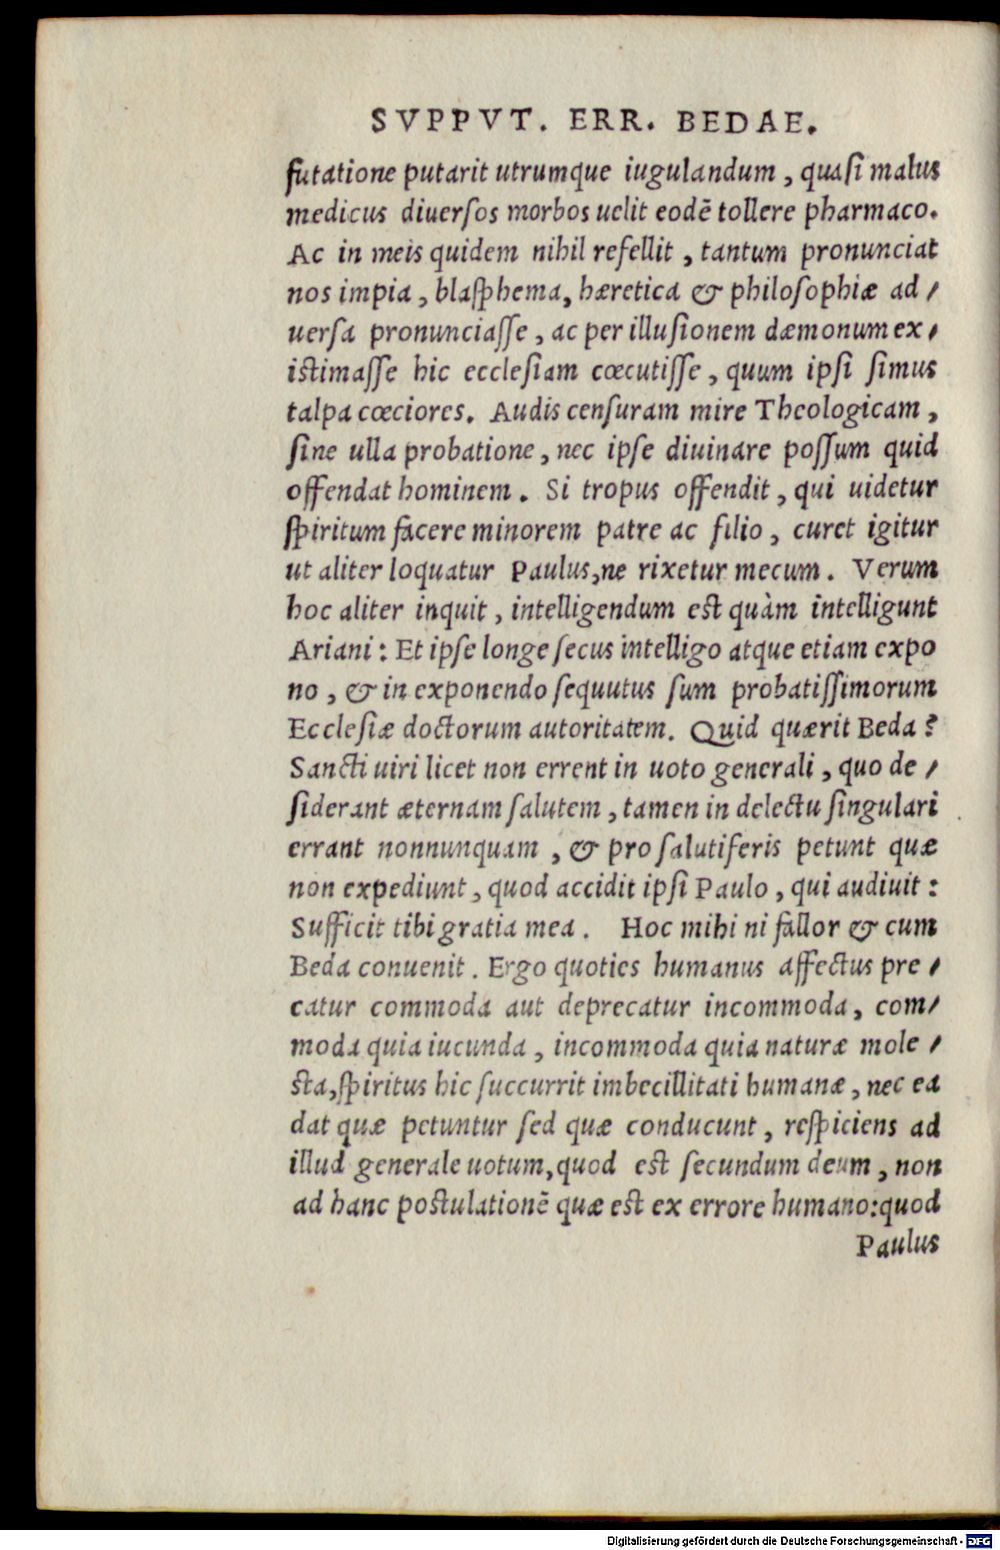 SVPPVT. ERR. BEDAE.
futatione putarit utrumque iugulandum, quaſi malus
medicus diuerſos morbos uelit eodē tollere pharmaco.
Ac in meis quidem nihil refellit, tantum pronunciat
nos impia, blaſphema, hæretica & philoſophiæ ad/
uerſa pronunciaſſe, ac per illuſionem dæmonum ex/
iſtimaſſe hic eccleſiam cœcutiſſe, quum ipſi ſimus
talpa cœciores. Audis cenſuram mire Theologicam,
ſine ulla probatione, nec ipſe diuinare poſſum quid
offendat hominem. Si tropus offendit, qui uidetur
ſpiritum facere minorem patre ac filio, curet igitur
ut aliter loquatur Paulus, ne rixetur mecum. Verum
hoc aliter inquit, intelligendum eſt quàm intelligunt
Ariani: Et ipſe longe ſecus intelligo atque etiam expo
no, & in exponendo ſequutus ſum probatiſſimorum
Eccleſiæ doctorum autoritatem. Quid quærit Beda?
Sancti uiri licet non errent in uoto generali, quo de/
ſiderant æternam ſalutem, tamen in delectu ſingulari
errant nonnunquam, & pro ſalutiferis petunt quæ
non expediunt, quod accidit ipſi Paulo, qui audiuit:
Sufficit tibi gratia mea. Hoc mihi ni fallor & cum
Beda conuenit. Ergo quoties humanus affectus pre/
catur commoda aut deprecatur incommoda, com/
moda quia iucunda, incommoda quia naturæ mole/
ſta, ſpiritus hic ſuccurrit imbecillitati humanæ, nec ea
dat quæ petuntur ſed quæ conducunt, reſpiciens ad
illud generale uotum, quod eſt ſecundum deum, non
ad hanc poſtulationē quæ eſt ex errore humano: quod
Paulus
Digitalisierung gefördert durch die Deutsche Forschungsgemeinschaft - DFG